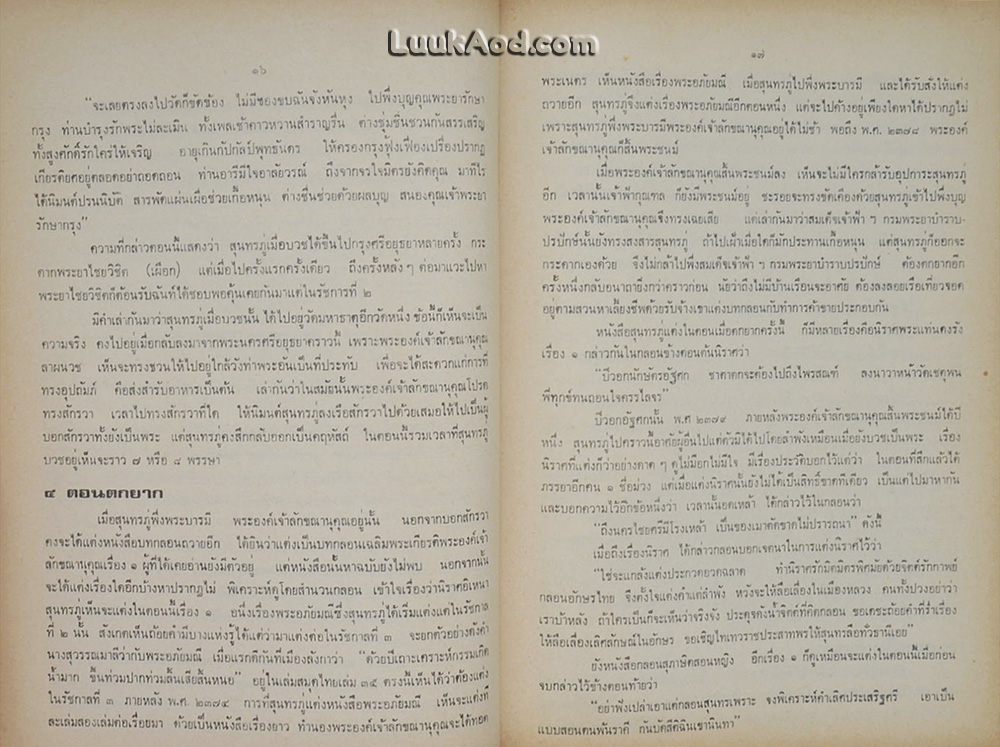 LuukAod.com
๑๖
"จะเลยตรงลงไปวัดก็ขัดข้อง ไม่มีของขบฉันจังหันหุง ไปพึ่งบุญคุณพระยารักษา
กรุง ท่านบำรุงรักพระไม่ละเมิน ทั้งเพลเช้าคาวหวานสำราญรื่น ต่างชุ่มชื่นชวนกันสรรเสริญ
ทั้งสูงศักดิ์รักใคร่ให้เจริญ อายุเกินกัปกัลป์พุทธันดร ให้ครองกรุงฟุ้งเฟื่องเปรื่องปรากฏ
เกียรติยศอยู่ตลอดอย่าถอดถอน ท่านอารีมีใจอาลัยวรณ์ ถึงจากจรใจมิตรยังคิดคุณ มาทีไร
ได้นิมนต์ปรนนิบัติ สารพัดแผ่นเผื่อช่วยเกื้อหนุน ต่างชื่นช่วยด้วยผลบุญ สนองคุณเจ้าพระยา
รักษากรุง"
ความที่กล่าวตอนนี้แสดงว่า สุนทรภู่เมื่อบวชได้ขึ้นไปกรุงศรีอยุธยาหลายครั้ง กระ
ดากพระยาไชยวิชิต (เผือก) แต่เมื่อไปครั้งแรกครั้งเดียว ถึงครั้งหลัง ๆ ต่อมาแวะไปหา
พระยาไชยวิชิตก็ต้อนรับฉันท์ได้ชอบพอคุ้นเคยกันมาแต่ในรัชกาลที่ ๒
มีคำเล่ากันมาว่าสุนทรภู่เมื่อบวชนั้น ได้ไปอยู่วัดมหาธาตุอีกวัดหนึ่ง ข้อนี้ก็เห็นจะเป็น
ความจริง คงไปอยู่เมื่อกลับลงมาจากพระนครศรีอยุธยาคราวนี้ เพราะพระองค์เจ้าลักขณานุคุณ
ลาผนวช เห็นจะทรงชวนให้ไปอยู่ใกล้วังท่าพระอันเป็นที่ประทับ เพื่อจะได้สะดวกแก่การที่
ทรงอุปถัมภ์ คือส่งสำรับอาหารเป็นต้น เล่ากันว่าในสมัยนั้นพระองค์เจ้าลักขณานุคุณโปรด
ทรงสักรวา เวลาไปทรงสักรวาที่ใด ให้นิมนต์สุนทรภู่ลงเรือสักรวาไปด้วยเสมอให้ไปเป็นผู้
บอกสักรวาทั้งยังเป็นพระ แต่สุนทรภู่คงสึกกลับออกเป็นคฤหัสถ์ ในตอนนี้รวมเวลาที่สุนทรภู่
บวชอยู่เห็นจะราว ๗ หรือ ๘ พรรษา
๔ ตอนตกยาก
เมื่อสุนทรภู่พึ่งพระบารมี พระองค์เจ้าลักขณานุคุณอยู่นั้น นอกจากบอกสักรวา
คงจะได้แต่งหนังสือบทกลอนถวายอีก ได้ยินว่าแต่งเป็นบทกลอนเฉลิมพระเกียรติพระองค์เจ้า
ลักขณานุคุณเรื่อง ๑ ผู้ที่ได้เคยอ่านยังมีตัวอยู่ แต่หนังสือนั้นหาฉบับยังไม่พบ นอกจากนั้น
จะได้แต่งเรื่องใดอีกบ้างหาปรากฏไม่ พิเคราะห์ดูโดยสำนวนกลอน เข้าใจเรื่องว่านิราศอิเหนา
สุนทรภู่เห็นจะแต่งในตอนนี้เรื่อง ๑ อนึ่งเรื่องพระอภัยมณีซึ่งสุนทรภู่ได้เริ่มแต่งแต่ในรัชกาล
ที่ ๒ นั้น สังเกตเห็นถ้อยคำมีบางแห่งรู้ได้แต่ว่ามาแต่งต่อในรัชกาลที่ ๓ จะยกตัวอย่างดังคำ
นางสุวรรณมาลีว่ากับพระอภัยมณี เมื่อแรกดีกันที่เมืองลังกาว่า "ด้วยปีเถาะเคราะห์กรรมเกิด
น้ำมาก ขึ้นท่วมปากท่วมลิ้นเสียสิ้นหนอ" อยู่ในเล่มสมุดไทยเล่ม ๓๕ ตรงนี้เห็นได้ว่าต้องแต่ง
ในรัชกาลที่ ๓ ภายหลัง พ.ศ. ๒๓๗๔ การที่สุนทรภู่แต่งหนังสือพระอภัยมณี เห็นจะแต่งที
ละเล่มสองเล่มต่อเรื่อยมา ด้วยเป็นหนังสือเรื่องยาว ทำนองพระองค์เจ้าลักขณานุคุณจะได้ทอด
๑๗
พระเนตร เห็นหนังสือเรื่องพระอภัยมณี เมื่อสุนทรภู่ไปพึ่งพระบารมี และได้รับสั่งให้แต่ง
ถวายอีก สุนทรภู่จึงแต่งเรื่องพระอภัยมณีอีกตอนหนึ่ง แต่จะไปค้างอยู่เพียงใดหาได้ปรากฏไม่
เพราะสุนทรภู่พึ่งพระบารมีพระองค์เจ้าลักขณานุคุณอยู่ได้ไม่ช้า พอถึง พ.ศ. ๒๓๗๘ พระองค์
เจ้าลักขณานุคุณก็สิ้นพระชนม์
เมื่อพระองค์เจ้าลักขณานุคุณสิ้นพระชนม์ลง เห็นจะไม่มีใครกล้ารับอุปการะสุนทรภู่
อีก เวลานั้นเจ้าฟ้ากุณฑล ก็ยังมีพระชนม์อยู่ ชะรอยจะทรงขัดเคืองด้วยสุนทรภู่เข้าไปพึ่งบุญ
พระองค์เจ้าลักขณานุคุณจึงทรงเฉยเสีย แต่เล่ากันมาว่าสมเด็จเจ้าฟ้า ฯ กรมพระยาบำราบ-
ปรปักษ์นั้นยังทรงสงสารสุนทรภู่ ถ้าไปเฝ้าเมื่อใดก็มักประทานเกื้อหนุน แต่สุนทรภู่ก็ออกจะ
กระดากเองด้วย จึงไม่กล้าไปพึ่งสมเด็จเจ้าฟ้า ฯ กรมพระยาบำราบปรปักษ์ ต้องตกยากอีก
ครั้งหนึ่งกลับอนาถายิ่งกว่าคราวก่อน นัยว่าถึงไม่มีบ้านเรือนจะอาศัย ต้องลงลอยเรือเที่ยวจอด
อยู่ตามสวนหาเลี้ยงชีพด้วยรับจ้างเขาแต่งบทกลอนกับทำการค้าขายประกอบกัน
หนังสือสุนทรภู่แต่งในตอนเมื่อตกยากครั้งนี้ ก็มีหลายเรื่องคือนิราศพระแท่นดงรัง
เรื่อง ๑ กล่าวกันในกลอนข้างตอนต้นนิราศว่า
"ปีวอกนักษัตรอัฐศก ชาตาตกจะต้องไปถึงไพรสณฑ์ ลงนาวาหน้าวัดเชตุพน
พี่ทุกข์ทนถอนใจครรไลจร"
ปีวอกอัฐศกนั้น พ.ศ. ๒๓๗๙ ภายหลังพระองค์เจ้าลักขณานุคุณสิ้นพระชนม์ได้ปี
หนึ่ง สุนทรภู่ไปคราวนี้อาศัยผู้อื่นไปแต่ตัวมิได้ไปโดยลำพังเหมือนเมื่อยังบวชเป็นพระ เรื่อง
นิราศที่แต่งก็ว่าอย่างดาด ๆ ดูไม่มีอกไม่มีใจ มีเรื่องประวัติบอกไว้แต่ว่า ในตอนที่สึกแล้วได้
ภรรยาอีกคน ๑ ชื่อม่วง แต่เมื่อแต่งนิราศนั้นยังไม่ได้เป็นสิทธิ์ขาดทีเดียว เป็นแต่ไปมาหากัน
และบอกความไว้อีกข้อหนึ่งว่า เวลานั้นอดเหล้า ได้กล่าวไว้ในกลอนว่า
"ถึงนครไชยศรีมีโรงเหล้า เป็นของเมาตัดขาดไม่ปรารถนา" ดังนี้
เมื่อถึงเรื่องนิราศ ได้กล่าวกลอนบอกเจตนาในการแต่งนิราศไว้ว่า
"ใช่จะแกล้งแต่งประกวดอวดฉลาด ทำนิราศรักมิตรพิศมัยด้วยจิตต์รักกาพย์
กลอนอักษรไทย จึงตั้งใจแต่งคำแต่ลำพัง หวังจะให้ลือเลื่องในเมืองหลวง คนทั้งปวงอย่าว่า
เราบ้าหลัง ถ้าใครเป็นก็จะเห็นว่าจริงจัง ประดุจดังน้ำจิตต์ที่คิดกลอน ขอเดชะถ้อยคำที่ร่ำเรื่อง
ให้ลือเลื่องเลิศลักษณ์ในอักษร ขอเชิญไทเทวราชประสาทพรให้สุนทรลือทั่วธานีเอย"
ยังหนังสือกลอนสุภาษิตสอนหญิง อีกเรื่อง ๑ ก็ดูเหมือนจะแต่งในตอนนี้เมื่อก่อน
จบกล่าวไว้ข้างตอนท้ายว่า
"อย่าฟังเปล่าเอาแต่กลอนสุนทรเพราะ จงพิเคราะห์คำเลิศประเสริฐศรี เอาเป็น
แบบสอนตนพ้นราคี กันบัดสีคำฉินเขานินทา"